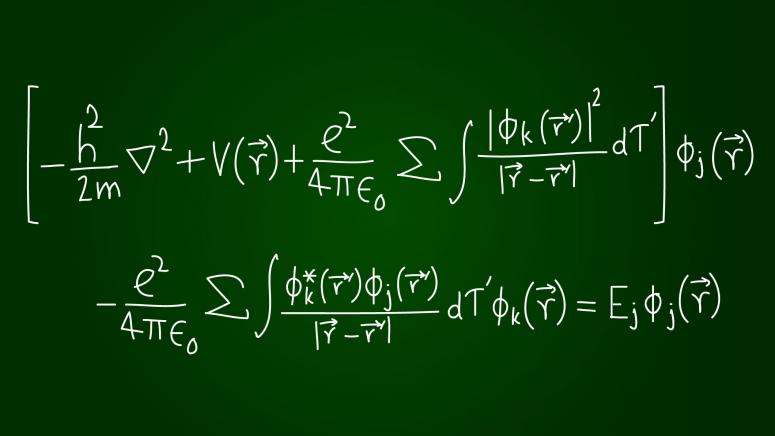 [-h²/2m ∇² + V(r⃗) + e²/4πϵ₀ ∑ ∫ |ϕₖ(r⃗′)|²/|r⃗ - r⃗′| dτ′] ϕⱼ(r⃗)
- e²/4πϵ₀ ∑ ∫ ϕₖ*(r⃗′)ϕⱼ(r⃗′)/|r⃗ - r⃗′| dτ′ϕₖ(r⃗) = Eⱼϕⱼ(r⃗)